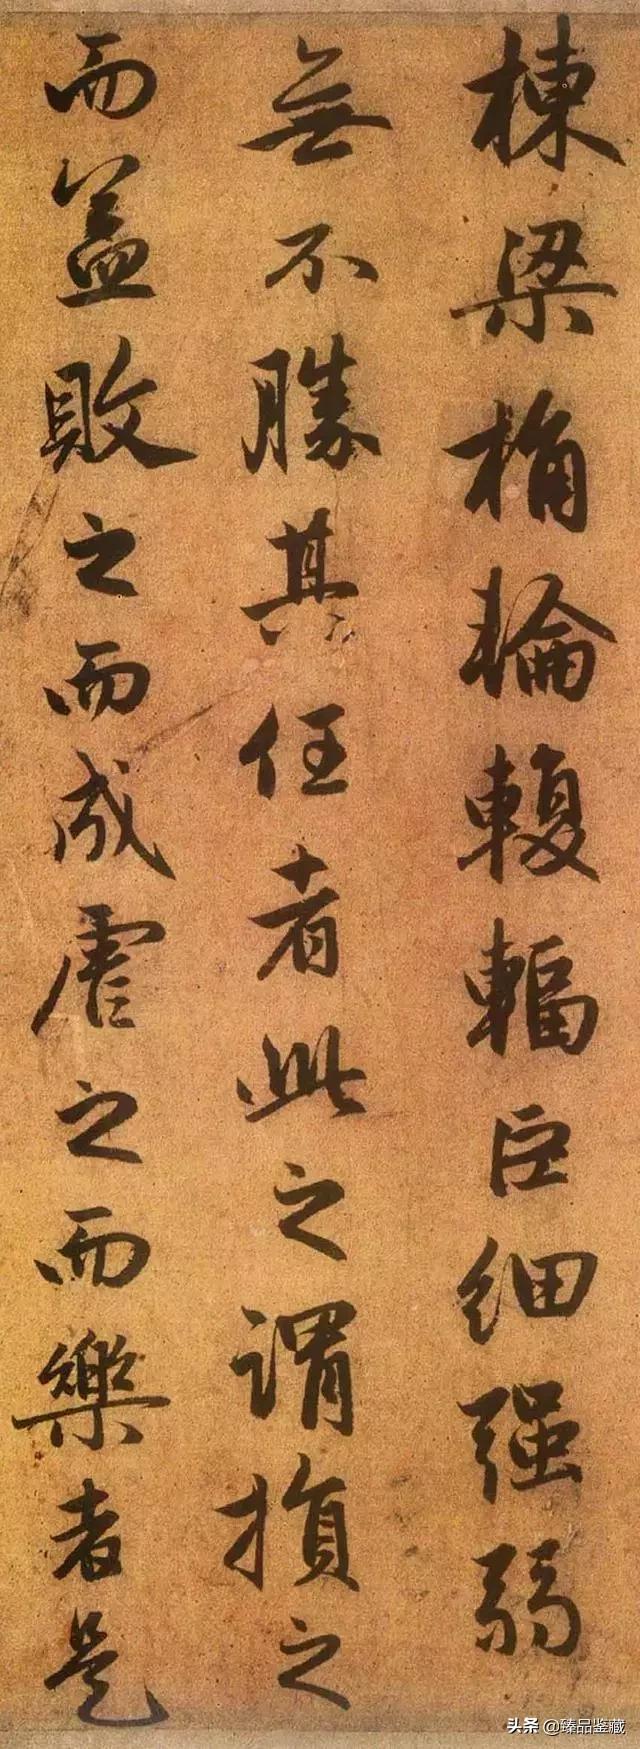 棟梁桷輪輹輻巨細强弱
無不勝其任者此之謂損之
而益敗之而成虐之而樂者是
头条 @臻品鉴藏